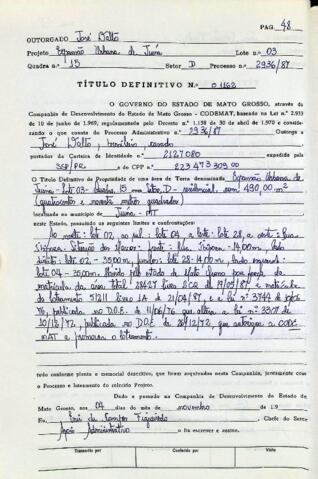 PAG. 48
OUTORGADO José Dalto
Projeto Expansão Urbana de Juína Lote n.º 03
Quadra n.º 15 Setor D Processo n.º 2936/87
TÍTULO DEFINITIVO N.º 01162
O GOVERNO DO ESTADO DE MATO GROSSO, através da
Companhia de Desenvolvimento do Estado de Mato Grosso - CODEMAT, baseada na Lei n.º 2.933
de 10 de junho de 1.969, regulamentada pelo Decreto n.º 1.138 de 30 de abril de 1.970 e consideran-
do o que consta do Processo Administrativo n.º 2936/87 Outorga a
José Dalto, brasileiro, casado
portador da Carteira de Identidade n.º 2127080 expedida pela
SSP/PR e CPF n.º 223473309.00
o Título Definitivo de Propriedade de uma área de Terra denominada Expansão Urbana de
Juína - lote 03 - Quadra 15 setor D - residencial com 490,00 m²
(quatrocentos e noventa metros quadrados)
localizada no município de Juína - MT
neste Estado, possuindo os seguintes limites e confrontações:
Ao norte: lote 02, ao sul: lote 04, a leste: lote 28, a oeste: Rua
frente: Rua 14,00m, lado
direito: lote 02 - 35,00m, fundos: lote 28 - 14,00m, lado esquerdo:
lote 04 - 35,00m,
da matrícula da área total 28427 livro 2CR de 19/03/87 e matrícula
do loteamento 51211 livro 1A de 21/04/87, e a lei nº 3744 de
76, publicada no D.O.E. de 11/06/76 que altera a lei nº 3307 de
10/12/72, publicada no D.O.E. de 28/12/72, que autoriza a CODE-
MAT a promover o loteamento.
tudo conforme planta e memorial descritivo, que foram arquivados nesta Companhia, juntamente com
o Processo e loteamento do referido Projeto.
Dado e passado na Companhia de Desenvolvimento do Estado de
Mato Grosso, nos 04 dias do mês de novembro de 19
Eu, de Campos Figueiredo Chefe do Setor
Apoio Administrativo o fiz escrever e assino.
Transcrito por Conferido por Visto